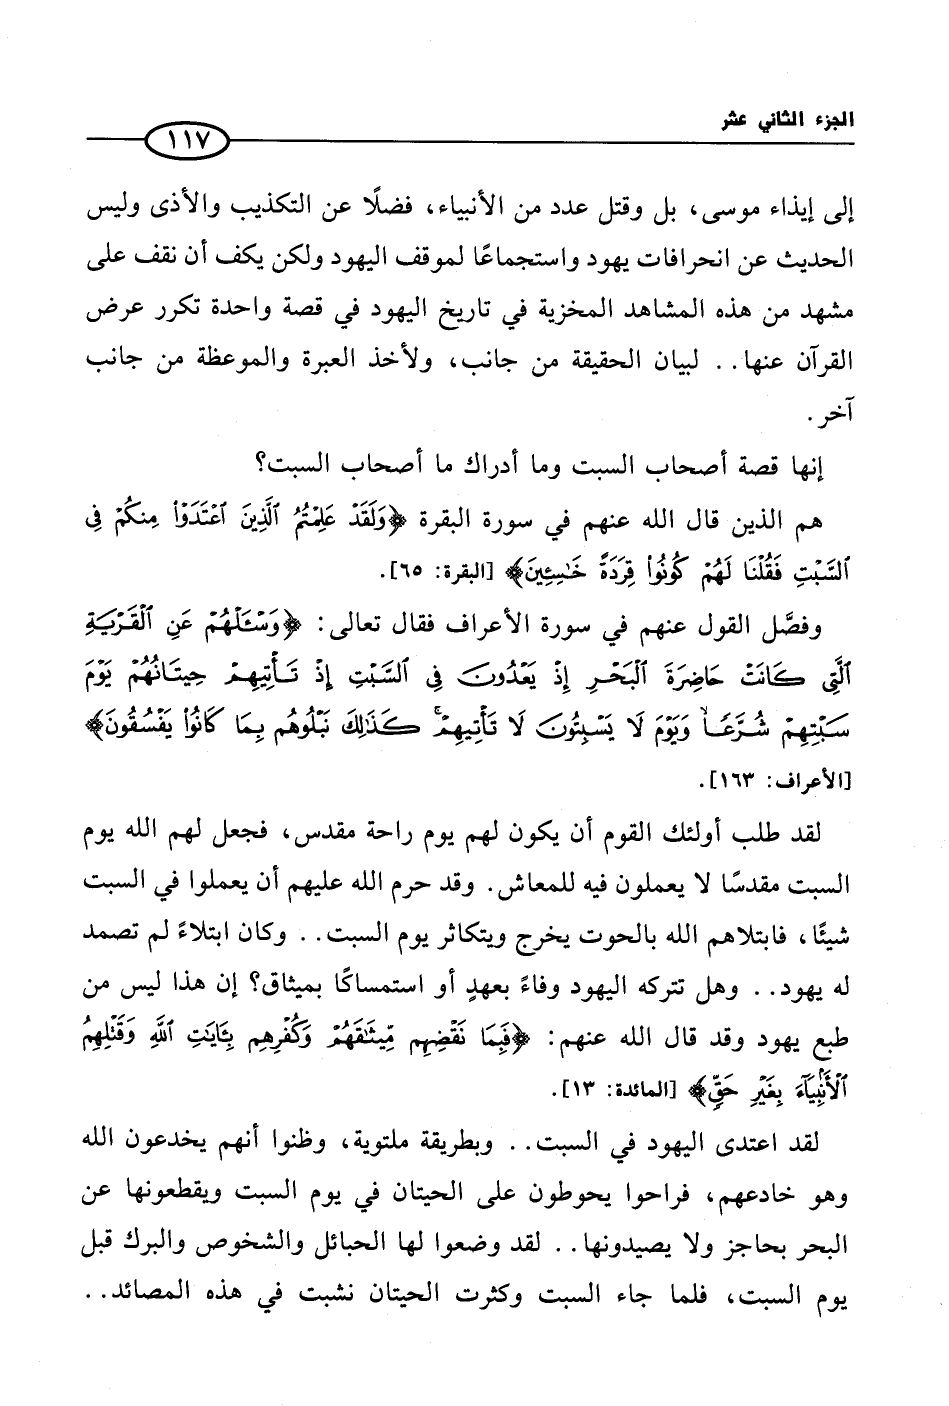 الجزء الثاني عشر
١١٧
إلى إيذاء موسى، بل وقتل عدد من الأنبياء، فضلًا عن التكذيب والأذى وليس
الحديث عن انحرافات يهود واستجماعًا لموقف اليهود ولكن يكف أن نقف على
مشهد من هذه المشاهد المخزية في تاريخ اليهود في قصة واحدة تكرر عرض
القرآن عنها.. لبيان الحقيقة من جانب، ولأخذ العبرة والموعظة من جانب
آخر.
إنها قصة أصحاب السبت وما أدراك ما أصحاب السبت؟
هم الذين قال الله عنهم في سورة البقرة ﴿وَلَقَدْ عَلِمْتُمُ ٱلَّذِينَ ٱعْتَدَوْا۟ مِنكُمْ فِى
ٱلسَّبْتِ فَقُلْنَا لَهُمْ كُونُوا۟ قِرَدَةً خَـٰسِـِٔينَ﴾ [البقرة: ٦٥].
وفصَّل القول عنهم في سورة الأعراف فقال تعالى: ﴿وَسْـَٔلْهُمْ عَنِ ٱلْقَرْيَةِ
ٱلَّتِى كَانَتْ حَاضِرَةَ ٱلْبَحْرِ إِذْ يَعْدُونَ فِى ٱلسَّبْتِ إِذْ تَأْتِيهِمْ حِيتَانُهُمْ يَوْمَ
سَبْتِهِمْ شُرَّعًا وَيَوْمَ لَا يَسْبِتُونَ لَا تَأْتِيهِمْ ۚ كَذَٰلِكَ نَبْلُوهُم بِمَا كَانُوا۟ يَفْسُقُونَ﴾
[الأعراف: ١٦٣].
لقد طلب أولئك القوم أن يكون لهم يوم راحة مقدس، فجعل لهم الله يوم
السبت مقدسًا لا يعملون فيه للمعاش. وقد حرم الله عليهم أن يعملوا في السبت
شيئًا، فابتلاهم الله بالحوت يخرج ويتكاثر يوم السبت.. وكان ابتلاءً لم تصمد
له يهود.. وهل تتركه اليهود وفاءً بعهدٍ أو استمساكًا بميثاق؟ إن هذا ليس من
طبع يهود وقد قال الله عنهم: ﴿فَبِمَا نَقْضِهِم مِّيثَـٰقَهُمْ وَكُفْرِهِم بِـَٔايَـٰتِ ٱللَّهِ وَقَتْلِهِمُ
ٱلْأَنۢبِيَآءَ بِغَيْرِ حَقٍّ﴾ [المائدة: ١٣].
لقد اعتدى اليهود في السبت.. وبطريقة ملتوية، وظنوا أنهم يخدعون الله
وهو خادعهم، فراحوا يحوطون على الحيتان في يوم السبت ويقطعونها عن
البحر بحاجز ولا يصيدونها.. لقد وضعوا لها الحبائل والشخوص والبرك قبل
يوم السبت، فلما جاء السبت وكثرت الحيتان نشبت في هذه المصائد..